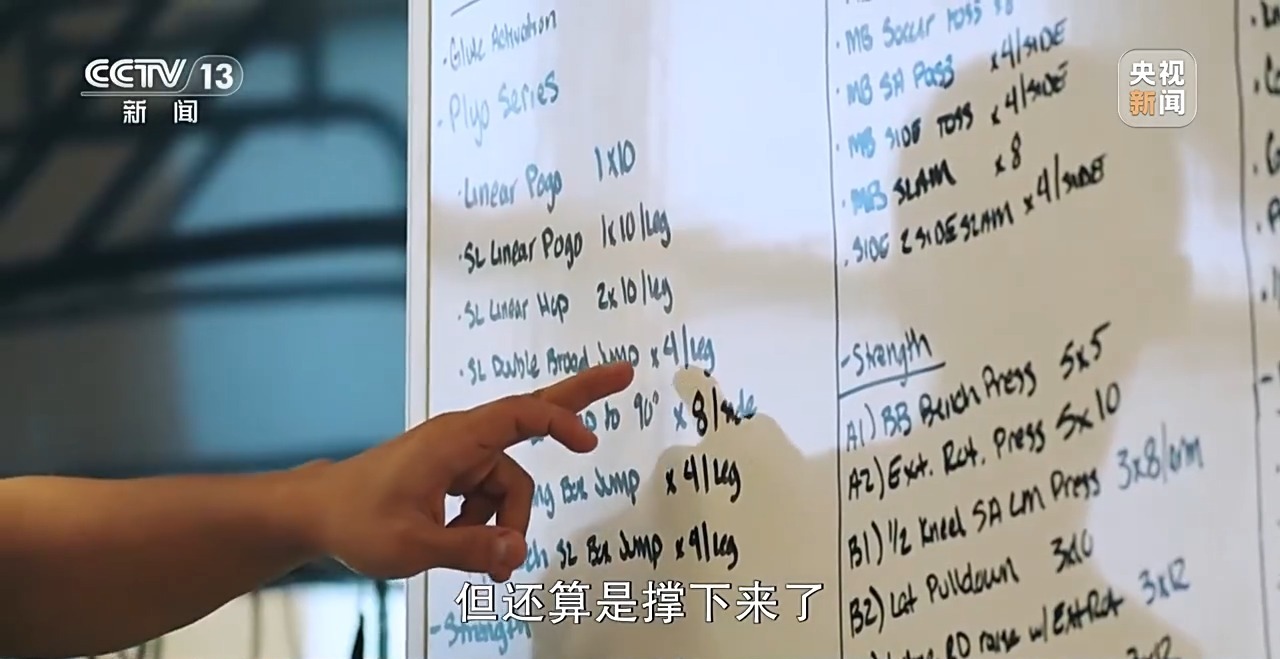 CCTV 13
新闻
央视
新闻
·Glute Activation
-Plyo Series
·Linear Pogo 1x10
·SL Linear Pogo 1x10/leg
·SL Linear Hop 2x10/leg
·SL Double Broad Jump x4/leg
to 90° x8/side
Box Jump x4/leg
SL Box Jump x4/leg
-Strength
·MB Soccer Toss x8
·MB SA Pass x4/SIDE
·MB SIDE TOSS x4/SIDE
·MB SLAM x8
·SIDE 2 SIDE SLAM x4/SIDE
-Strength
A1) BB Bench Press 5x5
A2) Ext. Rot. Press 5x10
B1) 1/2 Kneel SA LM Press 3x8/arm
B2) Lat Pulldown 3x10
RD raise w/ Ext Rot 3x12
但还算是撑下来了